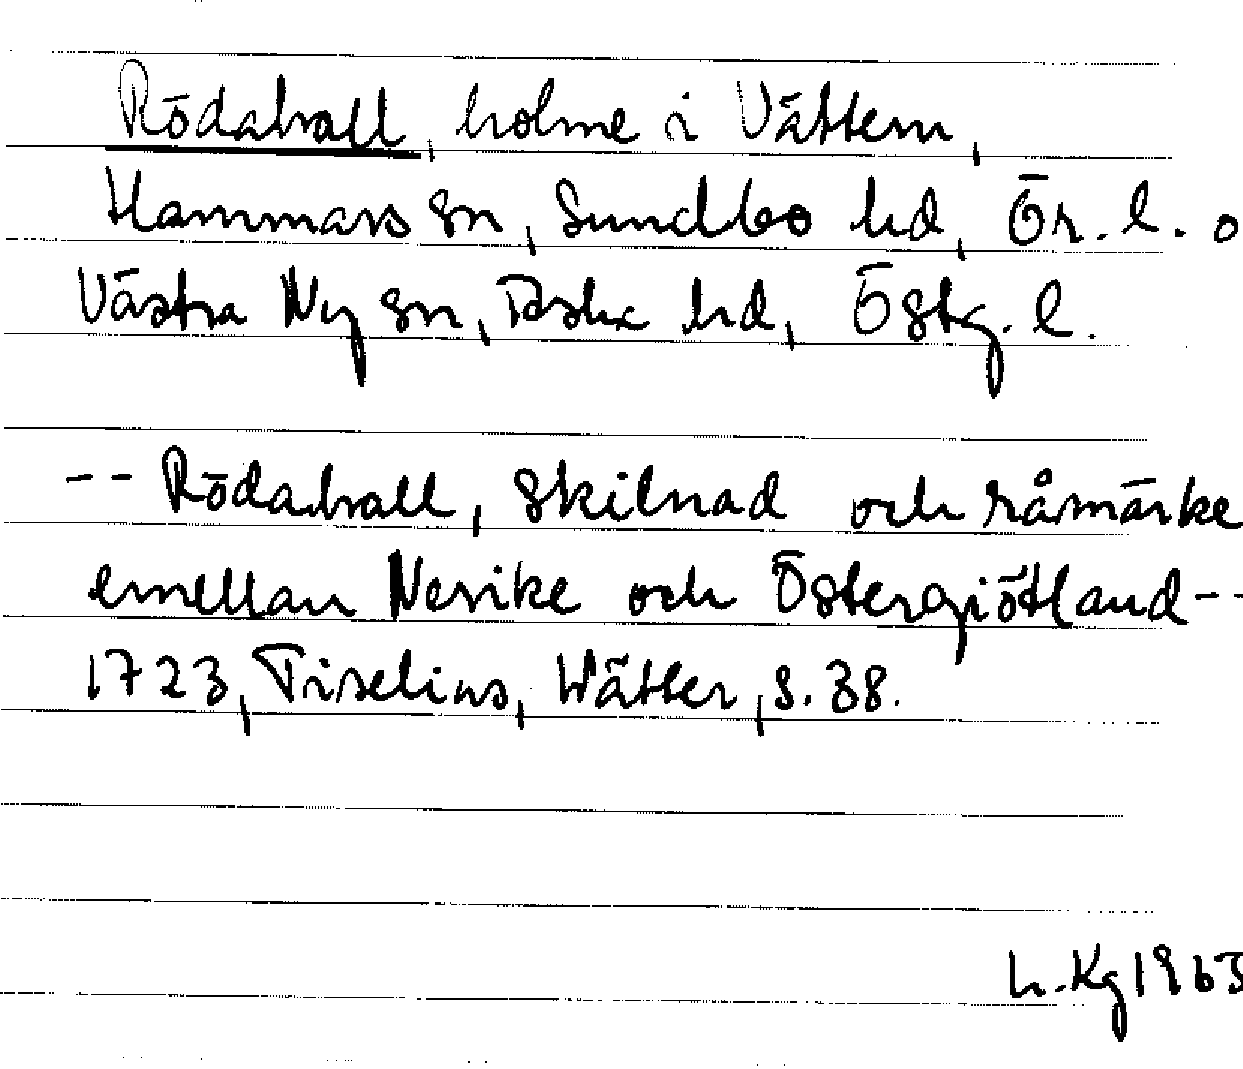 Rödahall, holme i Vättern,
Hammars sn, Sundbo hd, Ör. l. o
Västra Ny sn, Aska hd, Östg. l.
-- Rödahall, skilnad och råmärke
emellan Nerike och Östergiötland --
1723, Tiselius, Wätter, s. 38.
L. Kg 1963